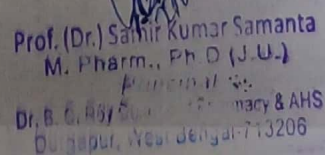 Prof. (Dr.) Samir Kumar Samanta
M. Pharm., Ph.D (J.U.)
Principal
Dr. B. C. Roy macy & AHS
Durgapur, West Bengal-713206